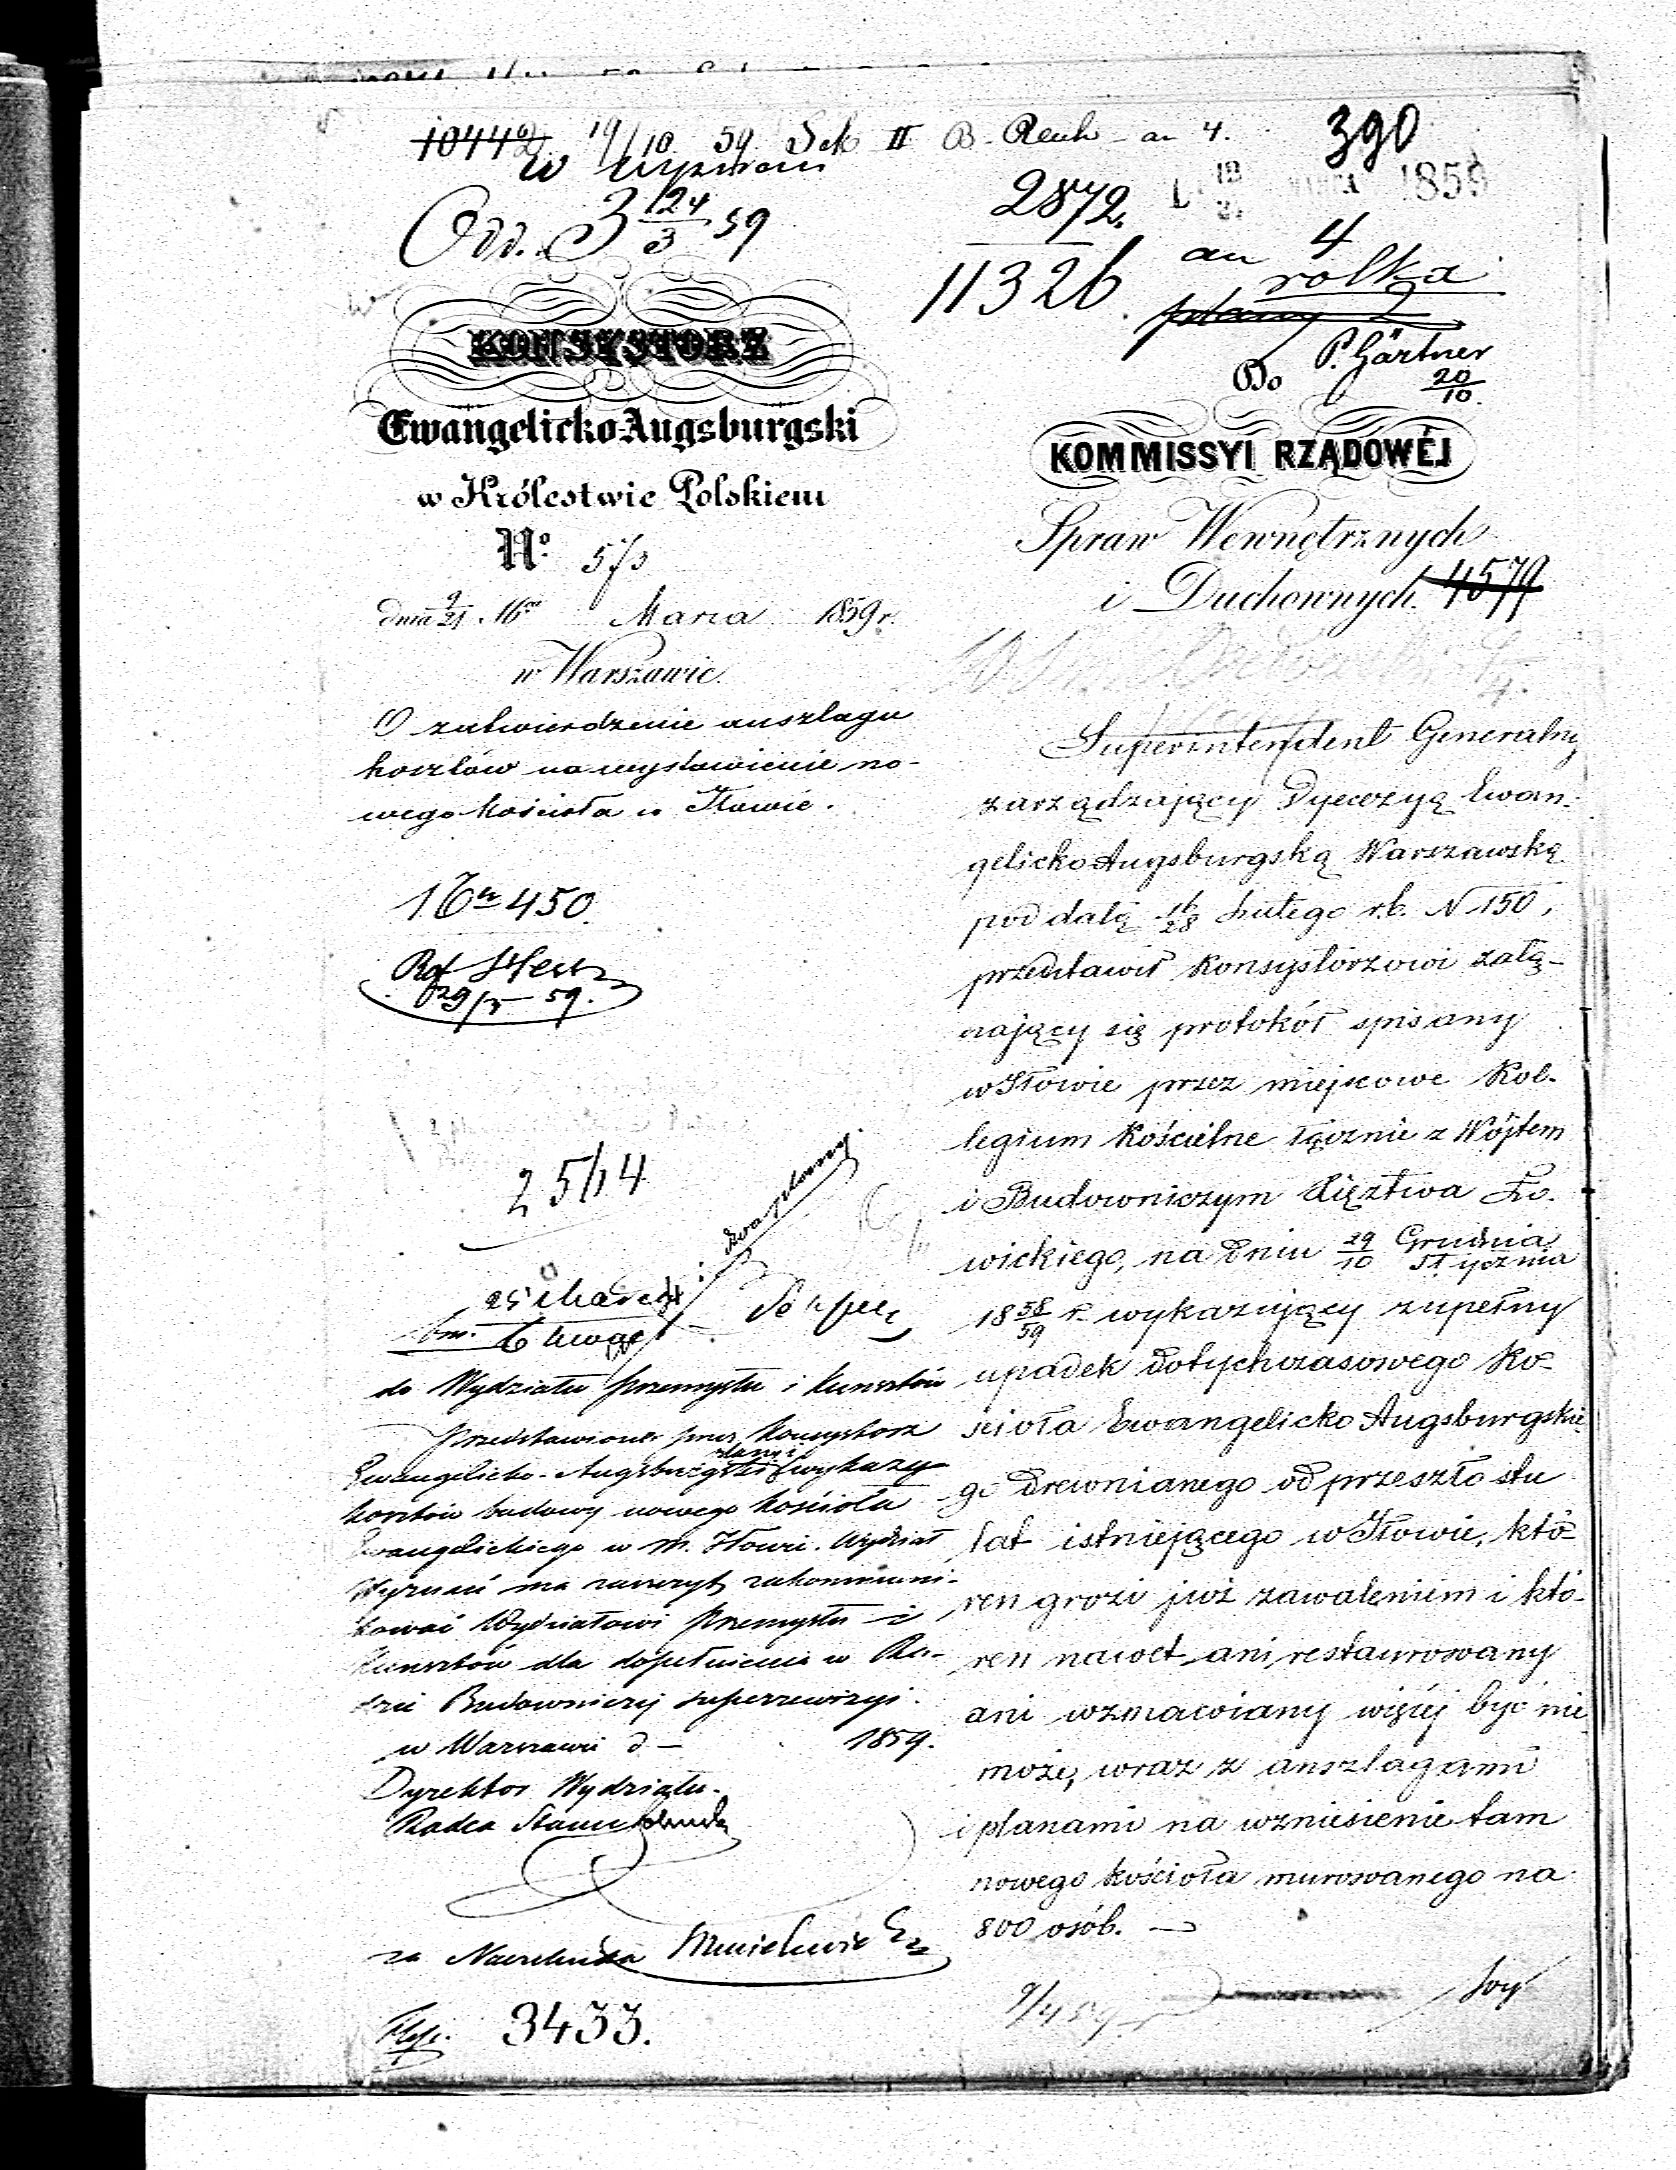 10442 19/10 59. Sek II B. Rach an 4. 390
2872. 1859
Odd. 3 24/3 59
an 4
11326. rolka
plany 2
P. Gärtner
20/10
KONSYSTORZ
Ewangelicko-Augsburgski
w Królestwie Polskiem
No. 573
dnia 9/21 Marca 1859 r.
w Warszawie.
O zatwierdzenie anszlagu
kosztów na wystawienie no-
wego kościoła w Iłowie.
450
29/3 59.
2564
25 Marca
dwa plany
do Wydziału Przemysłu i Kunsztów
Przedstawione przez Konsystorz
Ewangelicko-Augsburgski plany i wykazy
kosztów budowy nowego kościoła
Ewangelickiego w m. Iłowie. Wydział
Wyznań ma zaszczyt zakommuni-
kować Wydziałowi Przemysłu i
Kunsztów dla dopełnienia w Ra-
dzie Budowniczej superrewizyi.
w Warszawie d — 1859.
Dyrektor Wydziału.
Radca Stanu
za Naczelnika
3433.
Do
KOMMISSYI RZĄDOWÉJ
Spraw Wewnętrznych
i Duchownych. 4579
Superintendent Generalny
zarządzający Dyecezyą Ewan-
gelicko Augsburgską Warszawską
pod datą 16/28 Lutego r.b. N 150,
przedstawił Konsystorzowi załą-
czający się protokół spisany
w Iłowie przez miejscowe Kol-
legium Kościelne łącznie z Wójtem
i Budowniczym Xięztwa Ło-
wickiego, na dniu 29/10 Grudnia/Stycznia
18 58/59 r. wykazujący zupełny
upadek dotychczasowego Ko-
ścioła Ewangelicko Augsburgskie-
go drewnianego od przeszło stu
lat istniejącego w Iłowie, któ-
ren grozi już zawaleniem i któ-
ren nawet ani restaurowany
ani wzmacniany więcej być nie
może, wraz z anszlagami
i planami na wzniesienie tam
nowego kościoła murowanego na
800 osób. —